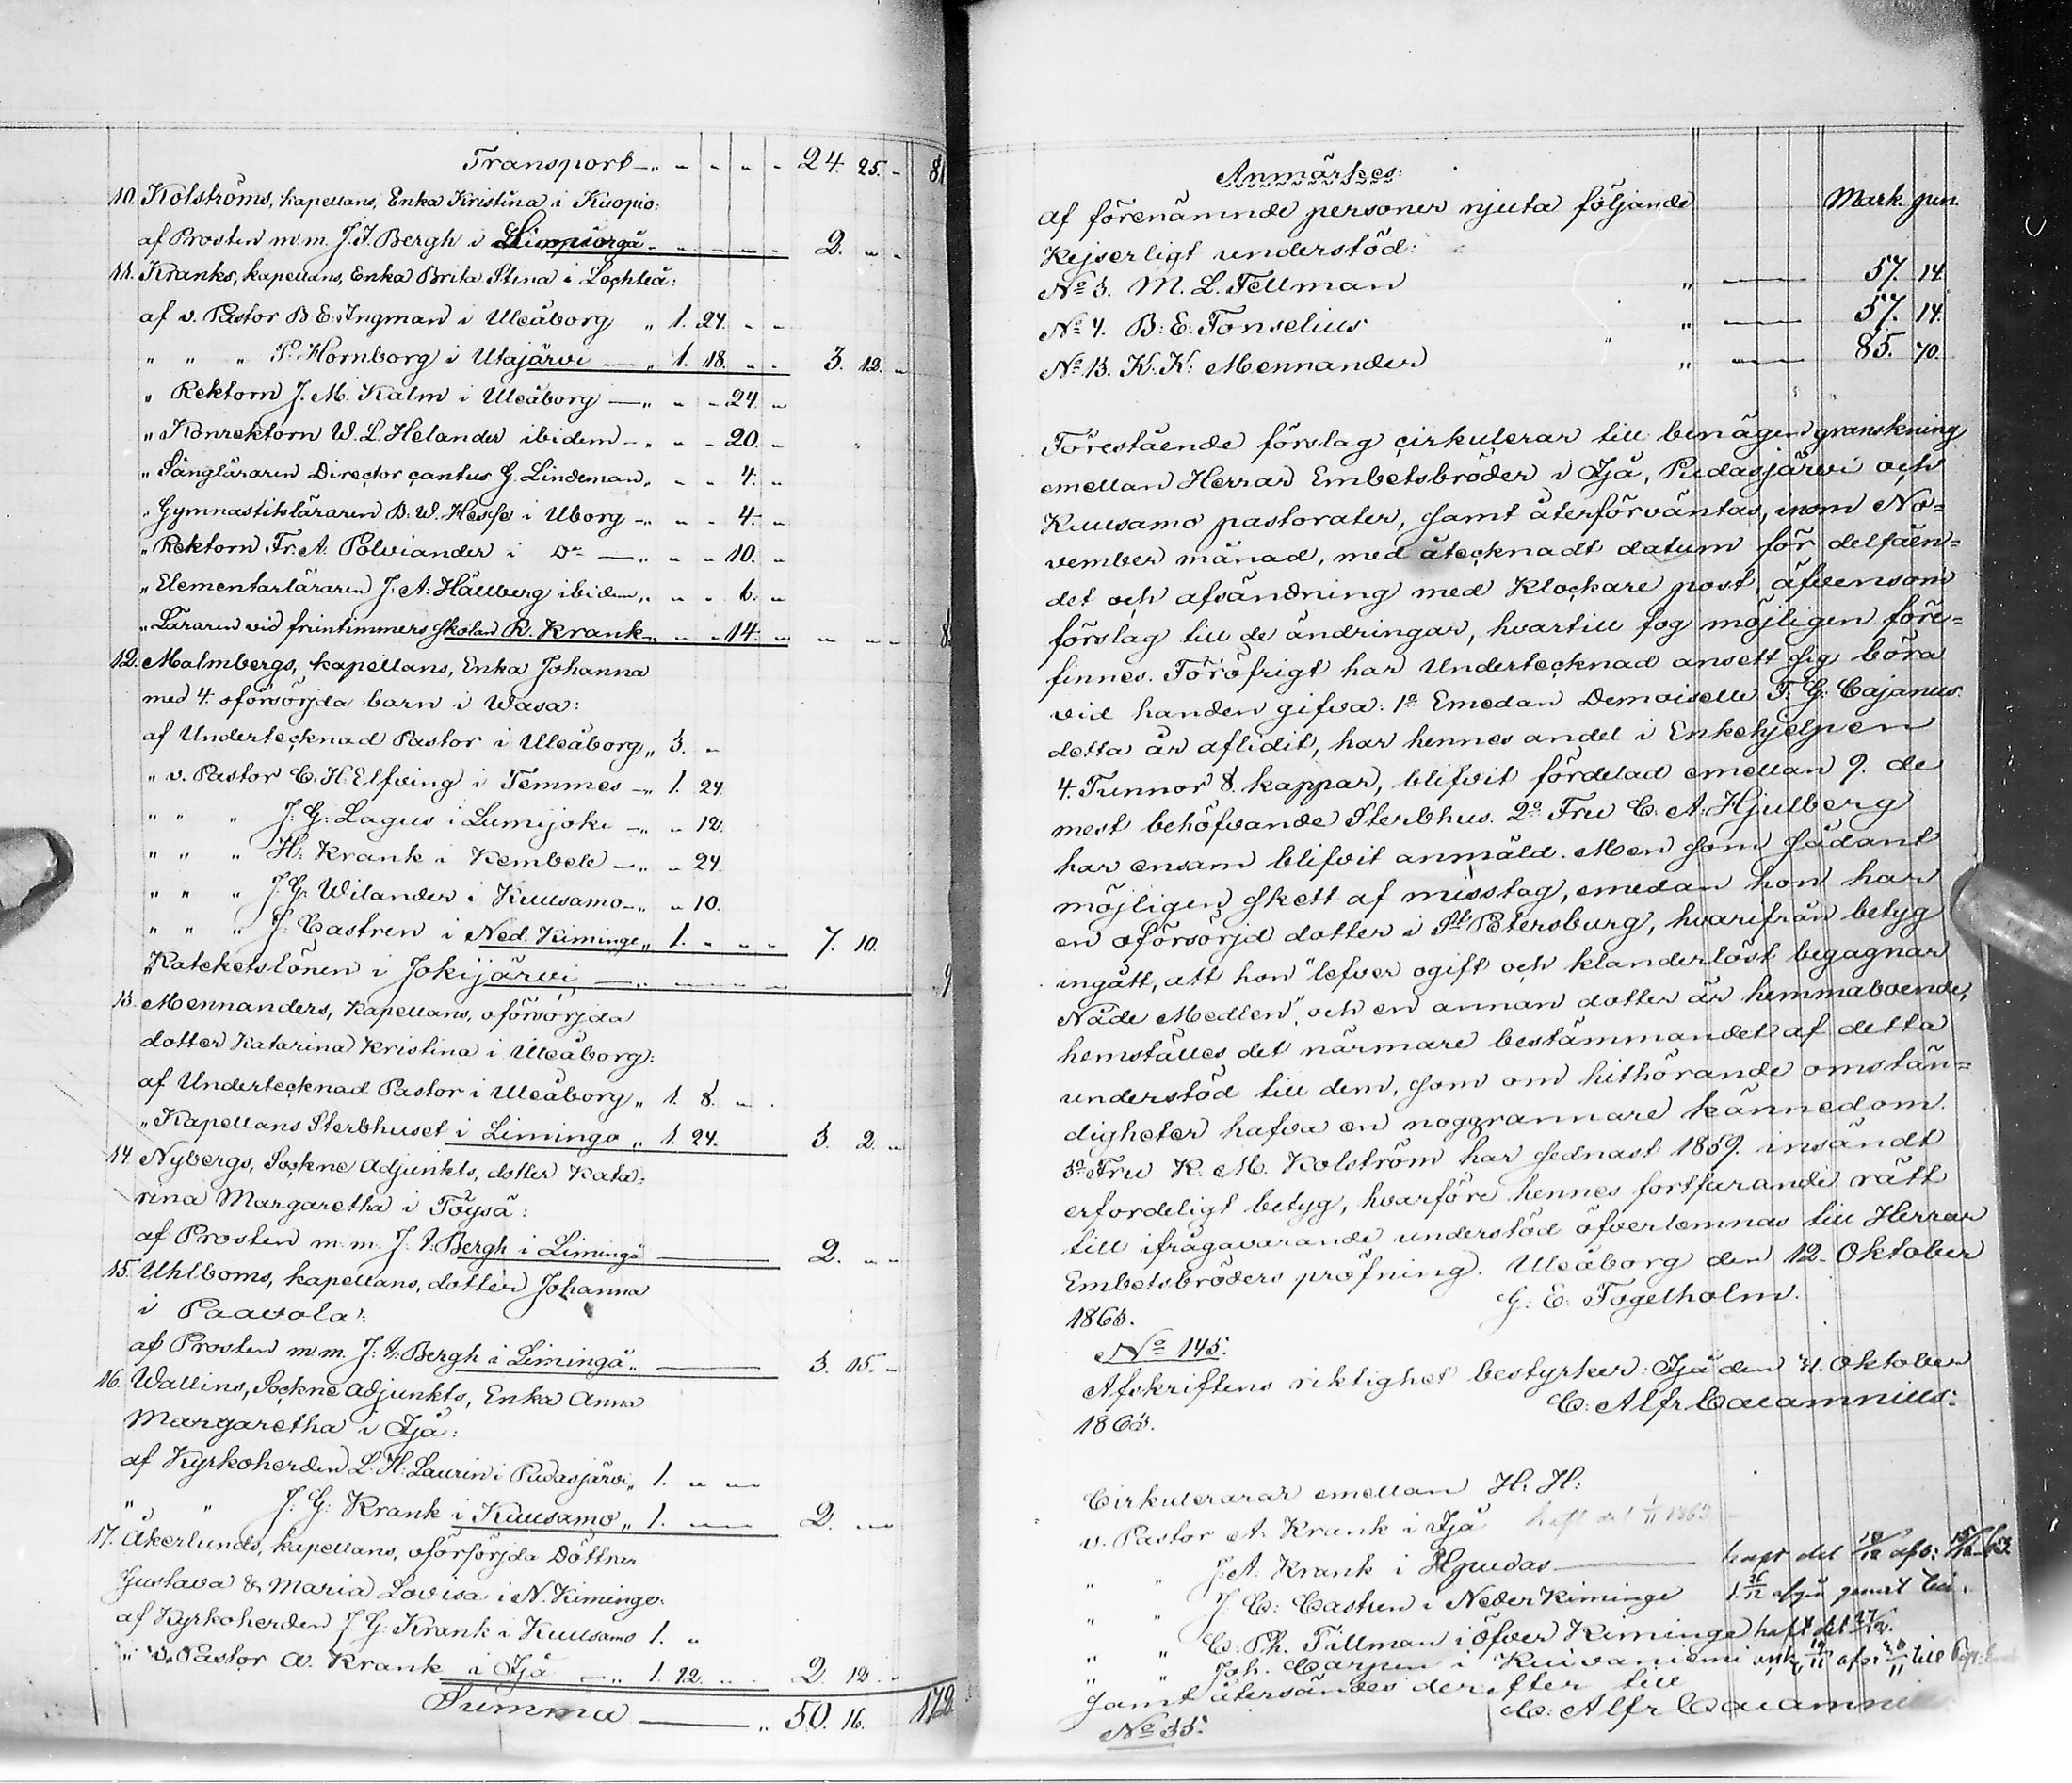 Transport — „ „ „ „ „ 24. 25. „ 81
10. Kolströms, kapellans, Enka Kristina i Kuopio:
af Prosten m.m. J. I. Bergh i „ „ „ „ 2. „ „
11. Kranks, kapellans, Enka Brita Stina i Lochteå:
af v. Pastor B. E. Ingman i Uleåborg „ 1. 24. „ „
„ „ „ P. Hornborg i Utajärvi — „ 1. 18. „ „ 3. 12. „
„ Rektorn J. M. Kalm i Uleåborg — „ „ „ 24. „
„ Konrektorn W. L. Helander ibidem — „ „ „ 20. „
„ Sångläraren Director cantus G. Lindeman „ „ „ 4. „
„ Gymnastikläraren B. W. Hesse i Uborg — „ „ „ 4. „
„ Rektorn Fr. A. Polviander i Do — „ „ „ 10. „
„ Elementarläraren J. A. Hällberg ibidem „ „ „ 6. „
„ Läraren vid fruntimmers skolan R. Krank „ „ „ 14. „ „ „ „ 8
12. Malmbergs, kapellans, Enka Johanna
med 4. oförsörjda barn i Wasa:
af Undertecknad Pastor i Uleåborg „ 3. „
„ v. Pastor C. H. Elfving i Temmes — „ 1. 24.
„ „ „ J. G. Lagus i Lumijoki — „ „ 12.
„ „ „ H. Krank i Kembele — „ „ 24.
„ „ „ J. G. Wilander i Kuusamo — „ „ 10.
„ „ „ J. Castren i Ned. Kiminge „ 1. „ „ „ 7. 10.
„ Kateketslönen i Jokijärvi — „ „ „ „ „ 9
13. Mennanders, Kapellans, oförsörjda
dotter Katarina Kristina i Uleåborg:
af Undertecknad Pastor i Uleåborg „ 1. 8. „ „
„ Kapellans Sterbhuset i Limingo „ 1. 24. 3. 2. „
14. Nybergs, Sockne Adjunkts, dotter Kata=
rina Margaretha i Töysä:
af Prosten m.m. J. I. Bergh i Limingå — 2. „ „
15. Uhlboms, kapellans, dotter Johanna
i Paavola:
af Prosten m.m. J. I. Bergh i Limingå „ — 3. 15. „
16. Wallins, Sockne Adjunkts, Enka Anna
Margaretha i Ijå:
af Kyrkoherden L. H. Laurin i Pudasjärvi „ 1. „ „
„ „ J. G. Krank i Kuusamo „ 1. „ 2. „
17. Åkerlunds, kapellans, oförsörjda Döttrar
Gustava & Maria Lovisa i N. Kiminge:
af Kyrkoherden J. G. Krank i Kuusamo 1. „
„ v. Pastor A. Krank i Ijå — „ 1. 12. „ „ 2. 12. „
Summa — „ 50. 16. 172.
Anmärkes:
af förenämnde personer njuta följande Mark. pen.
Kejserligt understöd:
No 3. M. L. Tellman „ — 57. 14.
No 4. B. E. Tonselius „ — 57. 14.
No 13. K. K. Mennander „ — 85. 70.
Förestående förslag cirkulerar till benägen granskning
emellan Herrar Embetsbröder i Ijå, Pudasjärvi och
Kuusamo pastorater, samt återförväntas, inom No=
vember månad, med åtecknadt datum för delfåen=
det och afsändning med Klockare post, äfvensom
förslag till de ändringar, hvartill fog möjligen före=
finnes. Föröfrigt har Undertecknad ansett sig böra
vid handen gifva: 1o Emedan Demoiselle T. G. Cajanus
detta år aflidit, har hennes andel i Enkehjelpen
4. Tunnor 8. kappar, blifvit fördelad emellan 9. de
mest behöfvande Sterbhus. 2o Fru C. A. Hjulberg
har ensam blifvit anmäld. Men som sådant
möjligen skett af misstag, emedan hon har
en oförsörjd dotter i St Petersburg, hvarifrån betyg
ingått, att hon "lefver ogift och klanderlöst begagnar
Nåde Medlen", och en annan dotter är hemmaboende,
hemställes det närmare bestämmandet af detta
understöd till dem, som om hithörande omstän=
digheter hafva en noggrannare kännedom.
3o Fru K. M. Kolström har sednast 1859. insändt
erforderligt betyg, hvarföre hennes fortfarande rätt
till ifrågavarande understöd öfverlemnas till Herrar
Embetsbröders pröfning. Uleåborg den 12. Oktober
1863. G. E. Fogelholm.
No 145.
Afskriftens riktighet bestyrker: Ijå den 31. Oktober
1863. C. Alfr Cajamnius.
Cirkulerar emellan H. H:
v. Pastor A. Krank i Ijå haft det 1/11 1863
„ „ J. A. Krank i Hpudas —
„ „ J. C. Castren i Neder Kiminge
„ „ C. Ph. Tillman i öfver Kiminge haft det
„ „ Joh. Carpen i Kuivaniemi
samt återsändes derefter till
No 35. C. Alfr